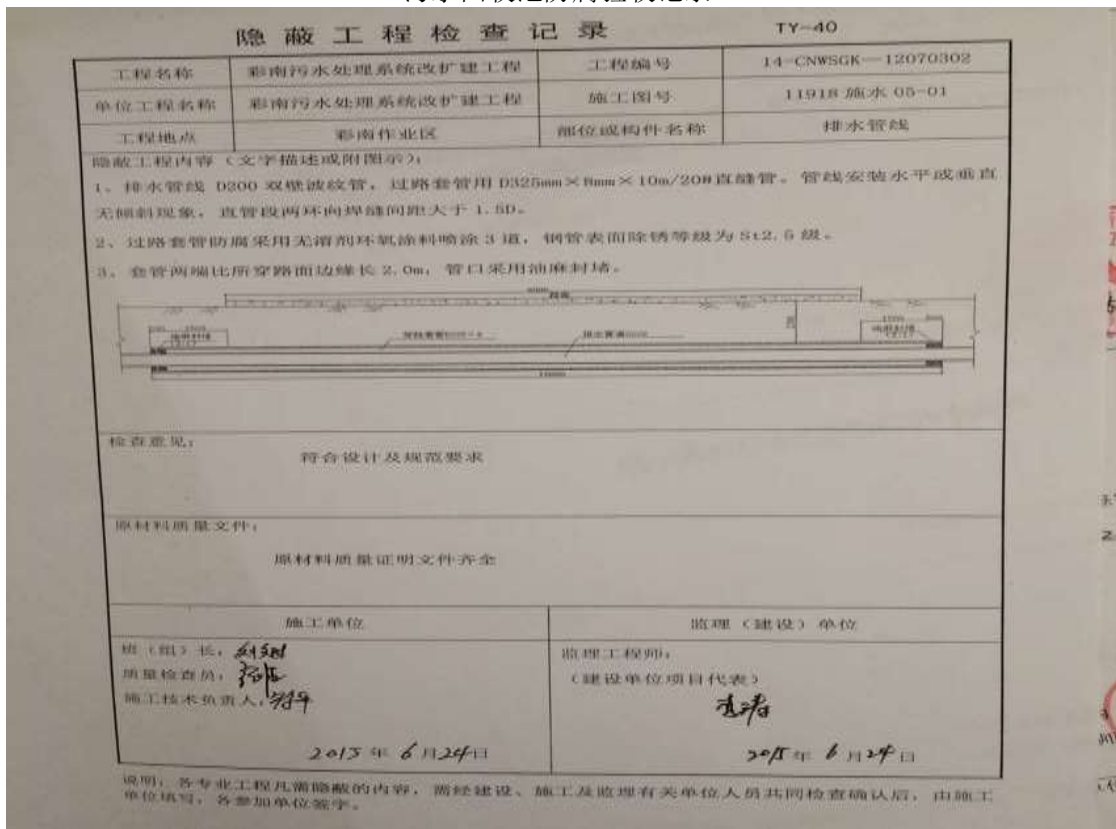 隐蔽工程检查记录 TY-40
工程名称 彩南污水处理系统改扩建工程 工程编号 14-CNWSGK-12070302
单位工程名称 彩南污水处理系统改扩建工程 施工图号 11918 施水 05-01
工程地点 彩南作业区 部位或构件名称 排水管线
隐蔽工程内容（文字描述或附图示）：
1、排水管线 D200 双壁波纹管，过路套管用 D325mm×8mm×10m/20#直缝管。管线安装水平或垂直
无倾斜现象，直管段两环向焊缝间距大于 1.5D。
2、过路套管防腐采用无溶剂环氧涂料喷涂 3 道，钢管表面除锈等级为 St2.5 级。
3、套管两端比所穿路面边缘长 2.0m，管口采用油麻封堵。
油麻封堵 油麻封堵
检查意见：
符合设计及规范要求
原材料质量文件：
原材料质量证明文件齐全
施工单位 监理（建设）单位
班（组）长： 监理工程师：
质量检查员： （建设单位项目代表）
施工技术负责人：
2015 年 6 月 24 日 2015 年 6 月 24 日
说明：各专业工程凡需隐蔽的内容，需经建设、施工及监理有关单位人员共同检查确认后，由施工
单位填写，各参加单位签字。